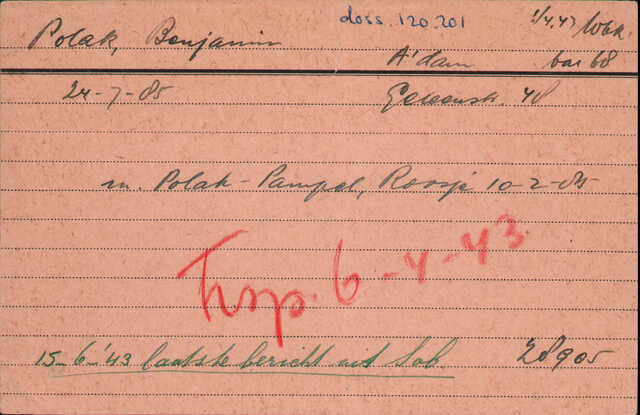 doss. 120.201
1/4.43 Wbk.
Polak, Benjamin
A'dam bar 68
24-7-85
48
m. Polak-Pampel, Roosje 10-2-85
Trsp. 6-4-43
15-6-'43 laatste bericht uit Sob. 28905